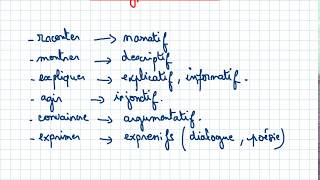 - raconter → narratif
- montrer → descriptif
- expliquer → explicatif, informatif.
- agir → injonctif.
- convaincre → argumentatif.
- exprimer → expressifs (dialogue, poésie)